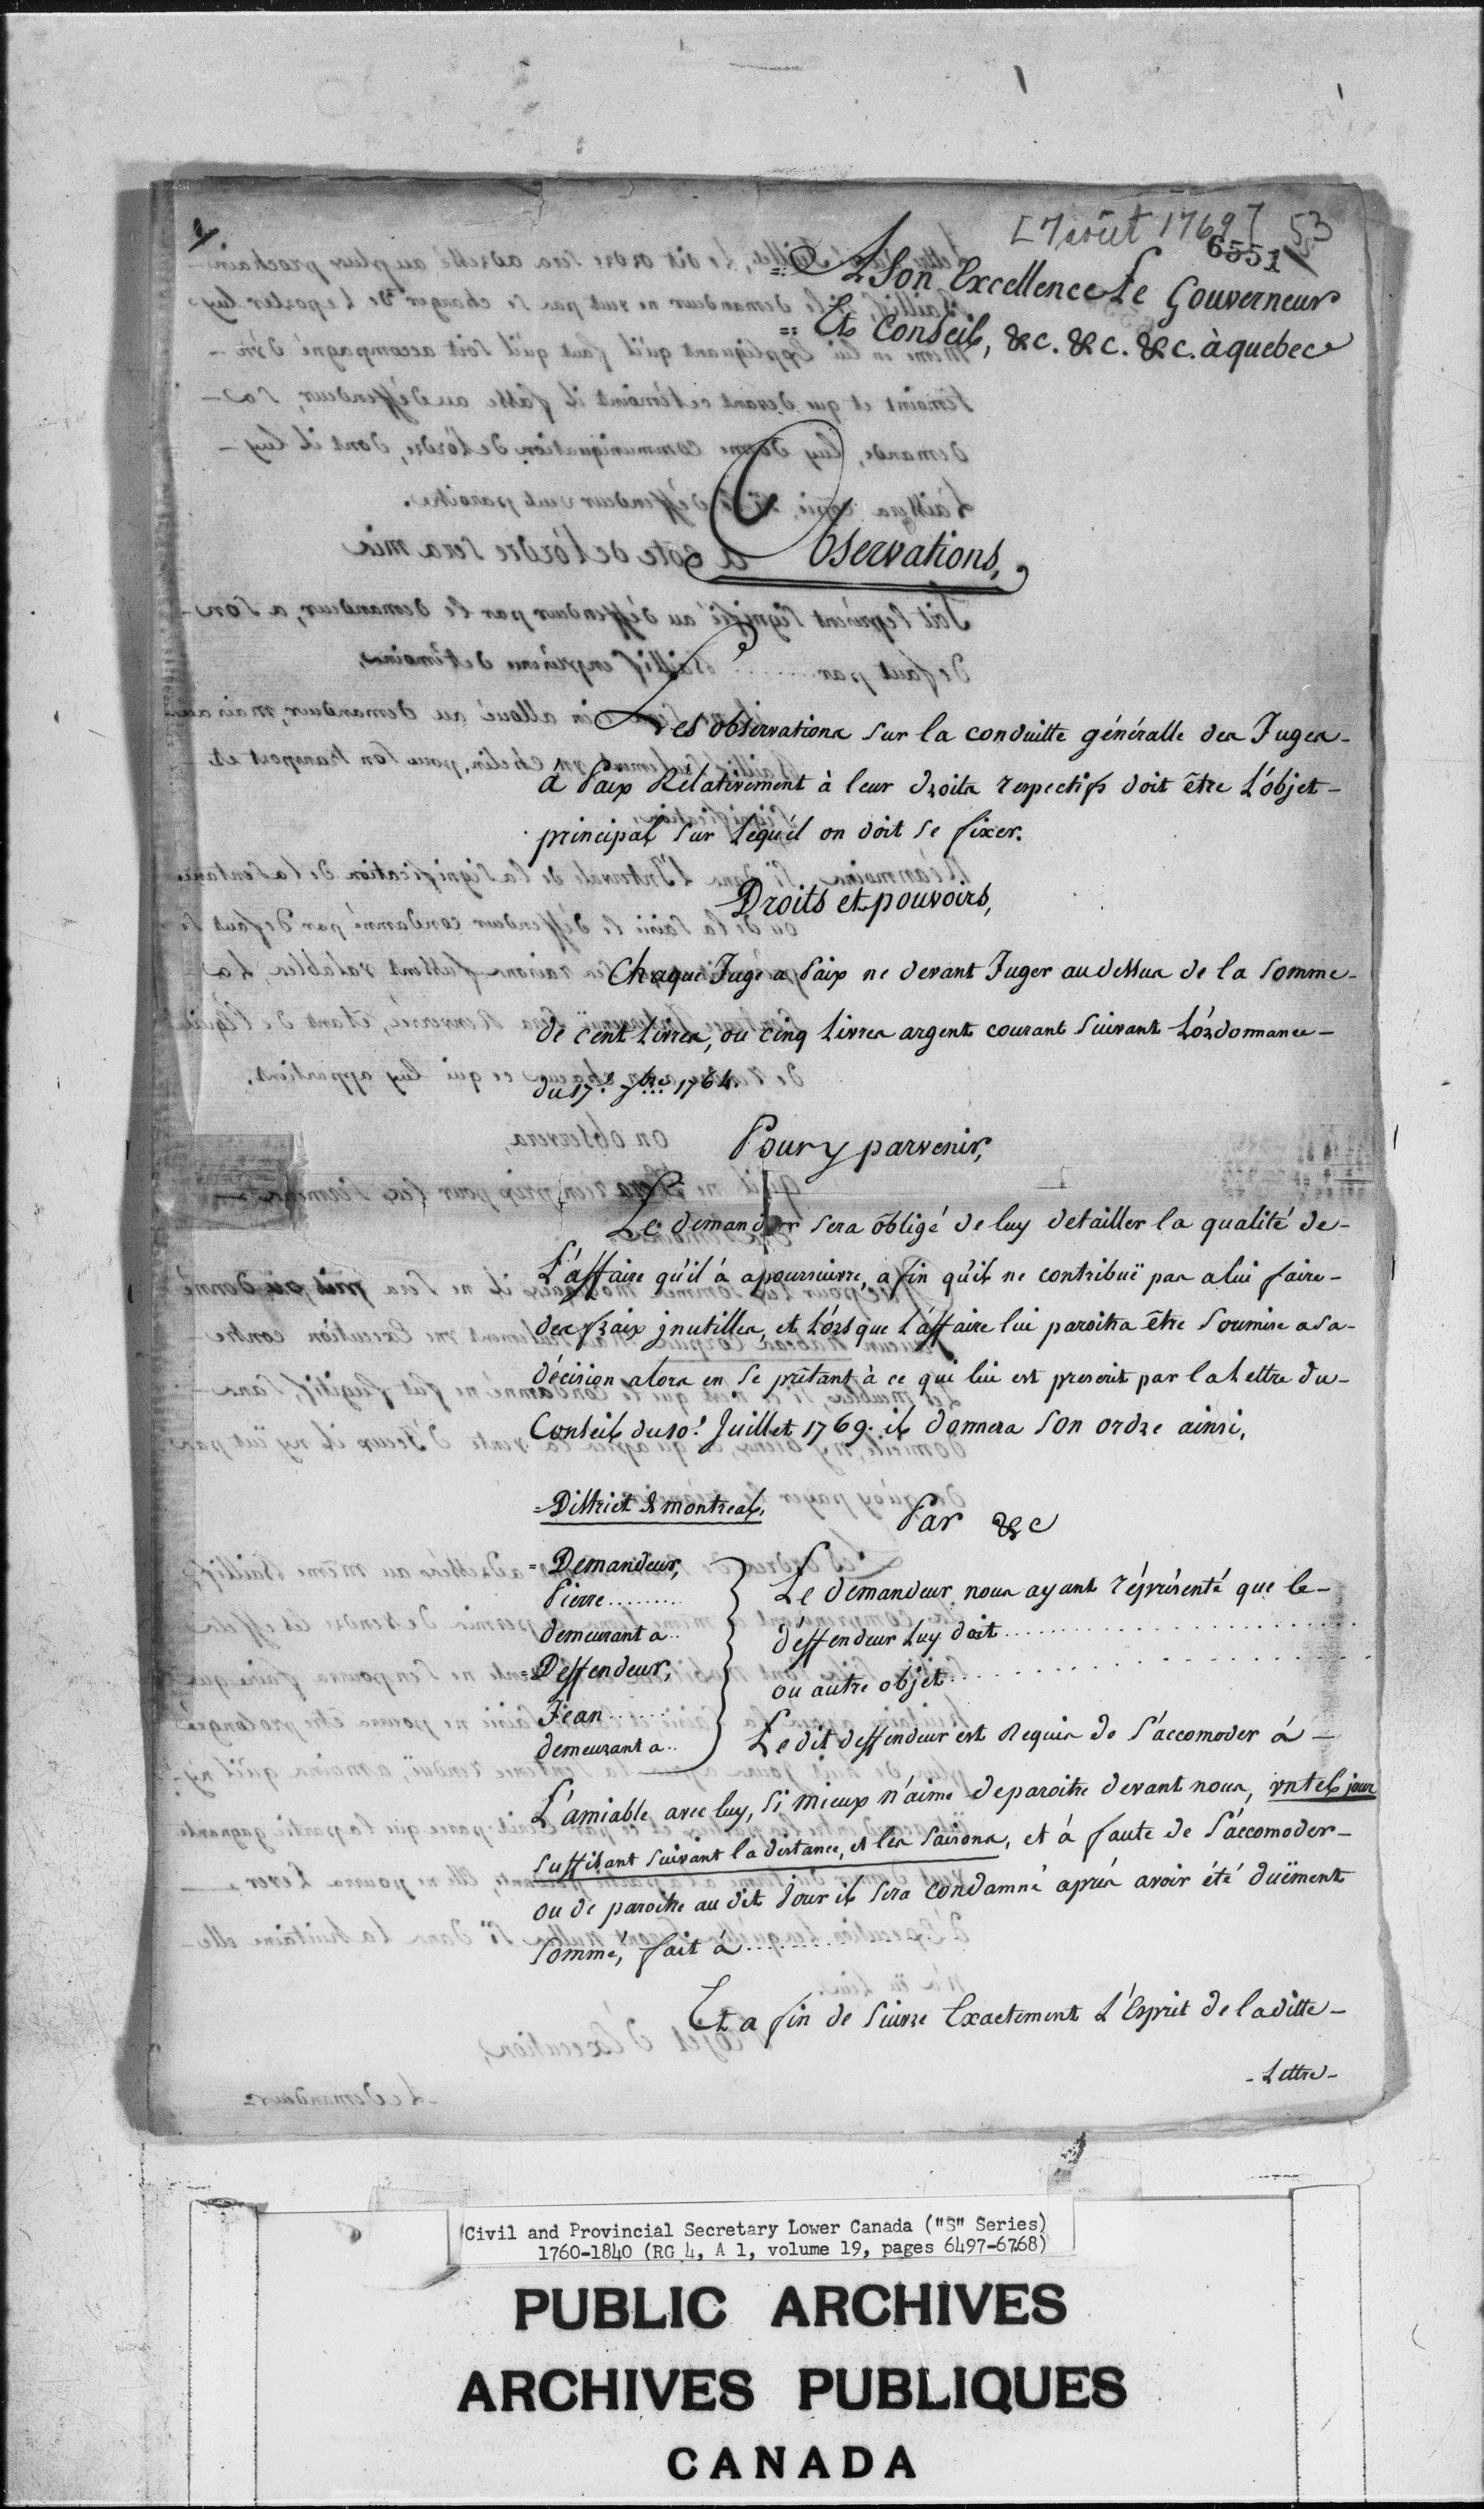 [7 août 1769] 53
6551
A Son Excellence Le Gouverneur
Et Conseil, &c. &c. &c. à quebec
Observations,
Les observations sur la conduitte généralle des Juges
à Paix Rélativement à leur droits respectifs doit être L'objet
principal sur Lequ'él on doit se fixer.
Droits et pouvoirs,
Chaque Juge a Paix ne devant Juger au dessus de la somme
de Cent Livres, ou cinq Livres argent courant suivant L'órdonnance
du 17e. 7bre. 1764.
Pour y parvenir,
Le demandeur sera obligé de luy detailler la qualité de
L'affaire qu'il á a poursuivre, a fin qu'il ne contribuë pas a lui faire
des fraix jnutilles, et Lórsque L'affaire lui paroitra être Soumise a sa
décision alors en se prêtant à ce qui lui est prescrit par la Lettre du
Conseil du 10e. Juillet 1769. il donnera son ordre ainsi,
=District de montreal,
Par &c
=Demandeur,
Pierre.........
demeurant a..
=Deffendeur,
Jean.......
demeurant a..
Le demandeur nous ayant réprésenté que le
déffendeur Luy doit..............................
ou autre objet..............................
Le dit deffendeur est Requis de s'accomoder à
L'amiable avec luy, si mieux n'aime de paroitre devant nous, vn tel jour
suffisant suivant la distance, et les saisons, et à faute de s'accomoder
ou de paroitre au dit Jour il sera condamné aprés avoir été duëment
sommé, fait à..........
Et a fin de suivre Exactement L'Esprit de la ditte
- Lettre -
Civil and Provincial Secretary Lower Canada ("S" Series)
1760-1840 (RG 4, A 1, volume 19, pages 6497-6768)
PUBLIC ARCHIVES
ARCHIVES PUBLIQUES
CANADA